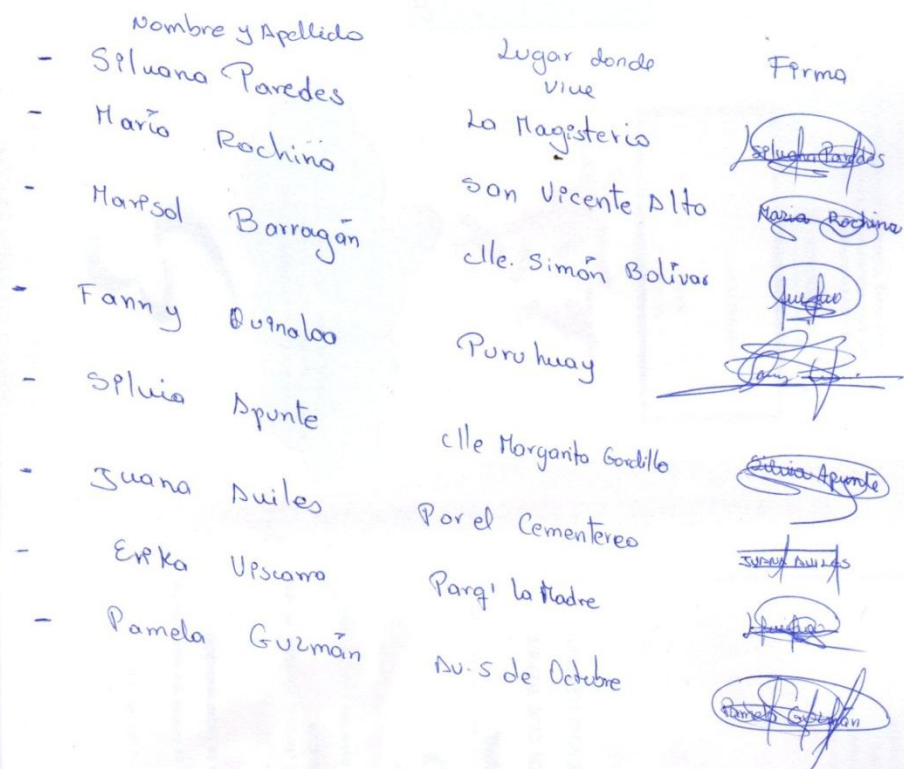 Nombre y Apellido Lugar donde vive Firma
- Silvana Paredes La Magisterio Silvana Paredes
- María Rochina San Vicente Alto Maria Rochina
- Marisol Barragán clle. Simón Bolívar
- Fanny Quinaloa Puruhuay
- Silvia Apunte clle Margarita Gordillo Silvia Apunte
- Juana Aviles Por el Cementereo JUANA AVILES
- Erika Viscarra Parq' la Madre
- Pamela Guzmán Av. 5 de Octubre Pamela Guzmán